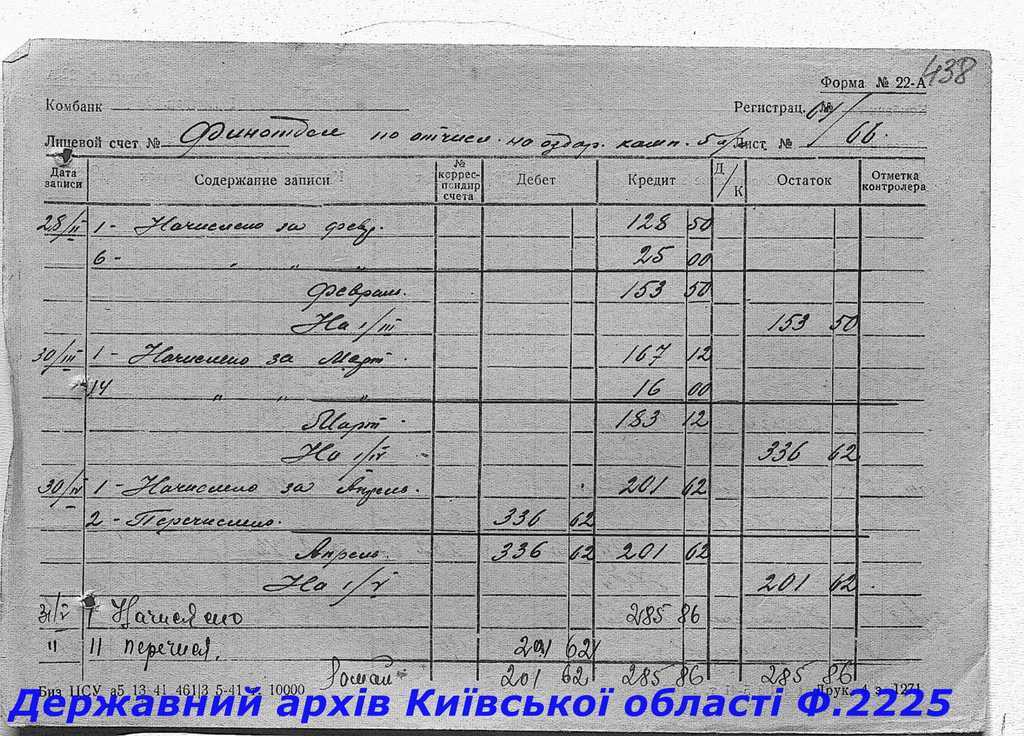 438
Форма № 22-А
Комбанк
Регистрац. №
Лицевой счет № Финотдел по отчисл. на оздор. камп. 5% Лист № 66.
Дата записи Содержание записи № коррес-пондир счета Дебет Кредит Д/К Остаток Отметка контролера
28/II 1- Начислено за февр. 128 50
6- " " " 25 00
Февраль. 153 50
На 1/III 153 50
30/III 1- Начислено за Март 167 12
14 " " " 16 00
Март 183 12
На 1/IV 336 62
30/IV 1- Начислено за Апрель. 201 62
2- Перечислено. 336 62
Апрель. 336 62 201 62
На 1/V 201 62
31/V 1 Начислено 285 86
" 11 перечисл. 201 62
201 62 285 86 285 86
Биз ЦСУ 5-41 10000 1271
Державний архів Київської області Ф.2225